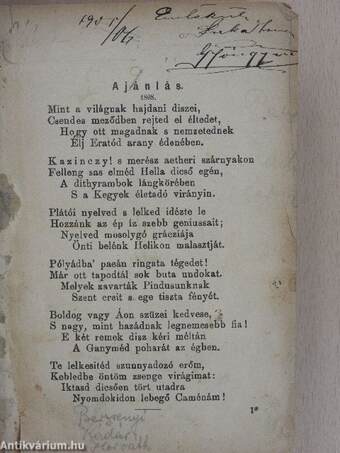 1901/06.
Emlékül
Ajánlás.
1808.
Mint a világnak hajdani diszei,
Csendes meződben rejted el éltedet,
Hogy ott magadnak s nemzetednek
Élj Eratód arany édenében.
Kazinczy! s merész aetheri szárnyakon
Felleng sas elméd Hella dicső egén,
A dithyrambok lángkörében
S a Kegyek életadó virányin.
Plátói nyelved s lelked idézte le
Hozzánk az ép íz szebb geniussait;
Nyelved mosolygó grácziája
Önti belénk Helikon malasztját.
Pólyádba' paeán ringata tégedet!
Már ott tapodtál sok buta undokat.
Melyek zavarták Pindusunknak
Szent creit s ege tiszta fényét.
Boldog vagy Áon szüzei kedvese,
S nagy, mint hazádnak legnemesebb fia!
E két remek disz kéri méltán
A Ganyméd poharát az égben.
Te lelkesítéd szunnyadozó erőm,
Kebledbe öntöm zsenge virágimat:
Iktasd dicsően tört utadra
Nyomdokidon lebegő Caménám!
1*
Berzsenyi
Antikvárium.hu